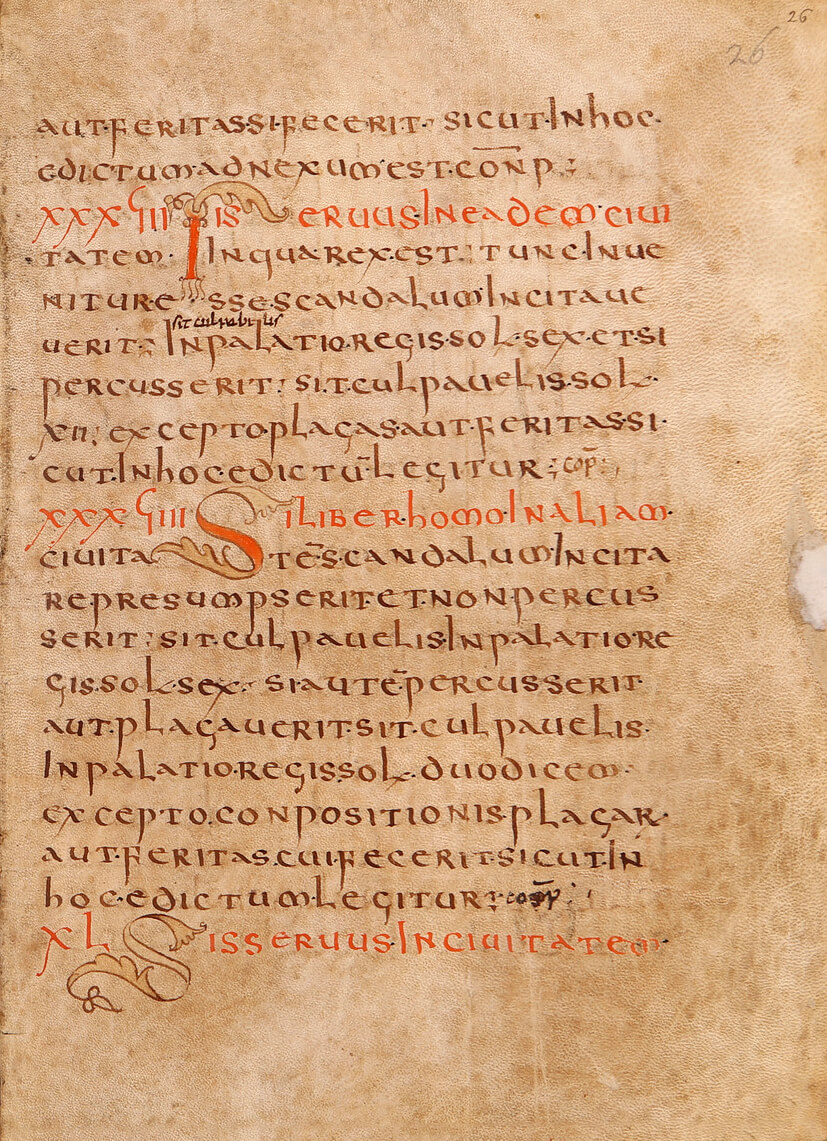 26
26
aut·feritas·si·fecerit· sicut·In hoc·
edictum·adnexum·est·con̅p·;
xxxviii Sis servus·In eadem·civi
tatem· In qua·rex·est·: tunc·Inve
niture·sse·scandalum·Incitave
sit culpabilis
uerit:; In palatio·regis·sol·sex·et·si
percusserit: sit·culpavelis·sol·
xii; excepto·plagas·aut·feritas·si·
cut·In hoc·edictu̅·legitur·;cop̅·;
xxxviiii Si liber·homo·In aliam·
civitate̅·scandalum·Incita
represumpserit·et·non percus
serit: sit·culpavelis·In palatio·re
gis·sol·sex· si·aute̅·percusserit·
aut·plaga·uerit·sit·culpavelis·
In palatio·regis·sol·duodicem·
excepto·conpositionis·plagar·
aut·feritas·cui·fecerit·sicut·In
hoc·edictum·legitur:·cop̅·:
xl Sis servus·In civitatem·